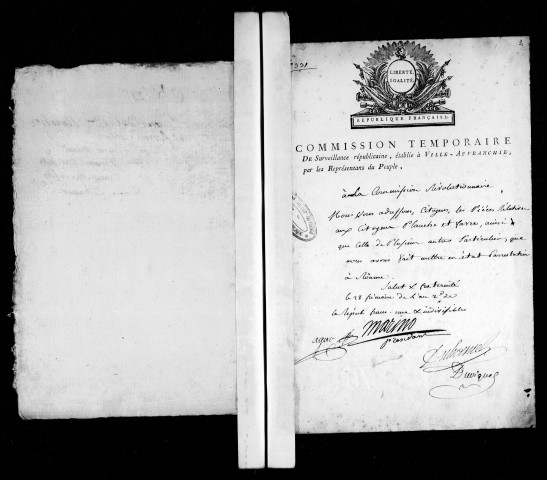 331
LIBERTÉ
EGALITÉ
RÉPUBLIQUE FRANÇAISE
COMMISSION TEMPORAIRE
De Surveillance républicaine, établie à VILLE-AFFRANCHIE,
par les Représentans du Peuple,
à La Commission Révolutionnaire,
Nous vous adressons, Citoyens, les Pièces Relatives
aux Citoyens Planche et favre, ainsi
que celle de Plusieurs autres Particulier, que
nous avons fait mettre en état d'arrestation
à Roanne.
Salut & fraternité
le 28 frimaire de l'an 2.d de
la Répub. franc. une & indivisible
Marino
président
Duviquet